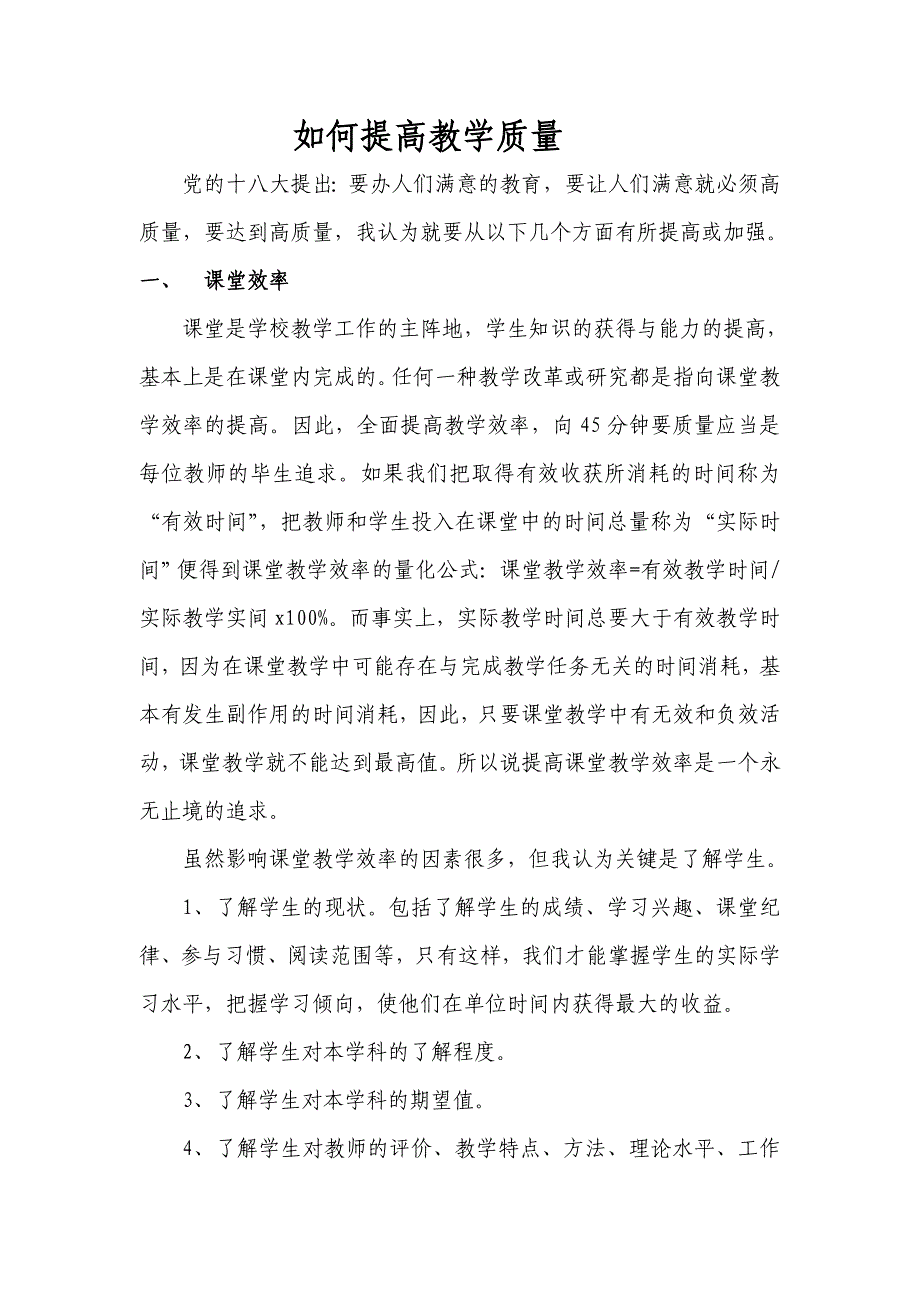 如何提高教学质量
党的十八大提出：要办人们满意的教育，要让人们满意就必须高
质量，要达到高质量，我认为就要从以下几个方面有所提高或加强。
一、 课堂效率
课堂是学校教学工作的主阵地，学生知识的获得与能力的提高，
基本上是在课堂内完成的。任何一种教学改革或研究都是指向课堂教
学效率的提高。因此，全面提高教学效率，向45分钟要质量应当是
每位教师的毕生追求。如果我们把取得有效收获所消耗的时间称为
“有效时间”，把教师和学生投入在课堂中的时间总量称为“实际时
间”便得到课堂教学效率的量化公式：课堂教学效率=有效教学时间/
实际教学实间x100%。而事实上，实际教学时间总要大于有效教学时
间，因为在课堂教学中可能存在与完成教学任务无关的时间消耗，基
本有发生副作用的时间消耗，因此，只要课堂教学中有无效和负效活
动，课堂教学就不能达到最高值。所以说提高课堂教学效率是一个永
无止境的追求。
虽然影响课堂教学效率的因素很多，但我认为关键是了解学生。
1、了解学生的现状。包括了解学生的成绩、学习兴趣、课堂纪
律、参与习惯、阅读范围等，只有这样，我们才能掌握学生的实际学
习水平，把握学习倾向，使他们在单位时间内获得最大的收益。
2、了解学生对本学科的了解程度。
3、了解学生对本学科的期望值。
4、了解学生对教师的评价、教学特点、方法、理论水平、工作